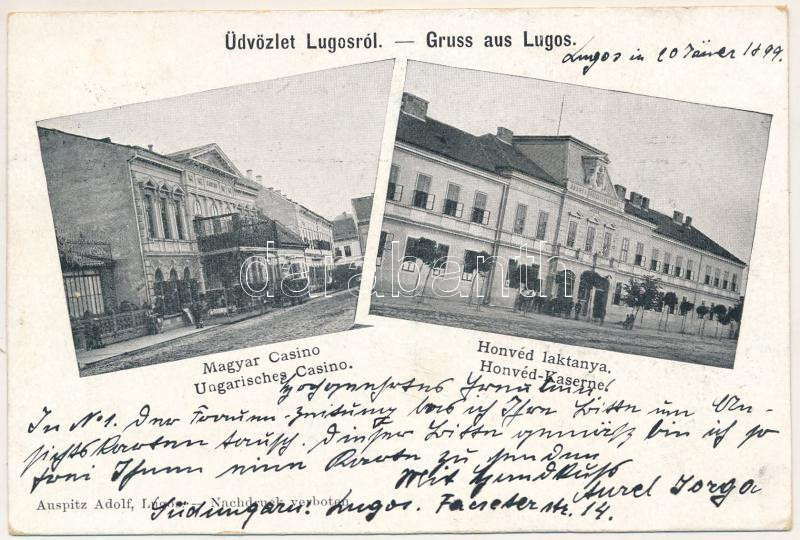 Üdvözlet Lugosról. — Gruss aus Lugos.
Lugos in 20 Jäner 1899.
darabanth
Magyar Casino
Ungarisches Casino.
Honvéd laktanya.
Honvéd-Kaserne.
Hochgeehrtes Fräulein!
In No 1. Der Frauen-Zeitung las ich Ihre Bitte um An-
sichtskarten tausch. Dieser Bitte gemäß bin ich so
frei Ihnen eine Karte zu senden
Mit Handkuss
Aurel Iorga
Auspitz Adolf, Lugos. — Nachdruck verboten.
Südungarn: Lugos. str. 14.